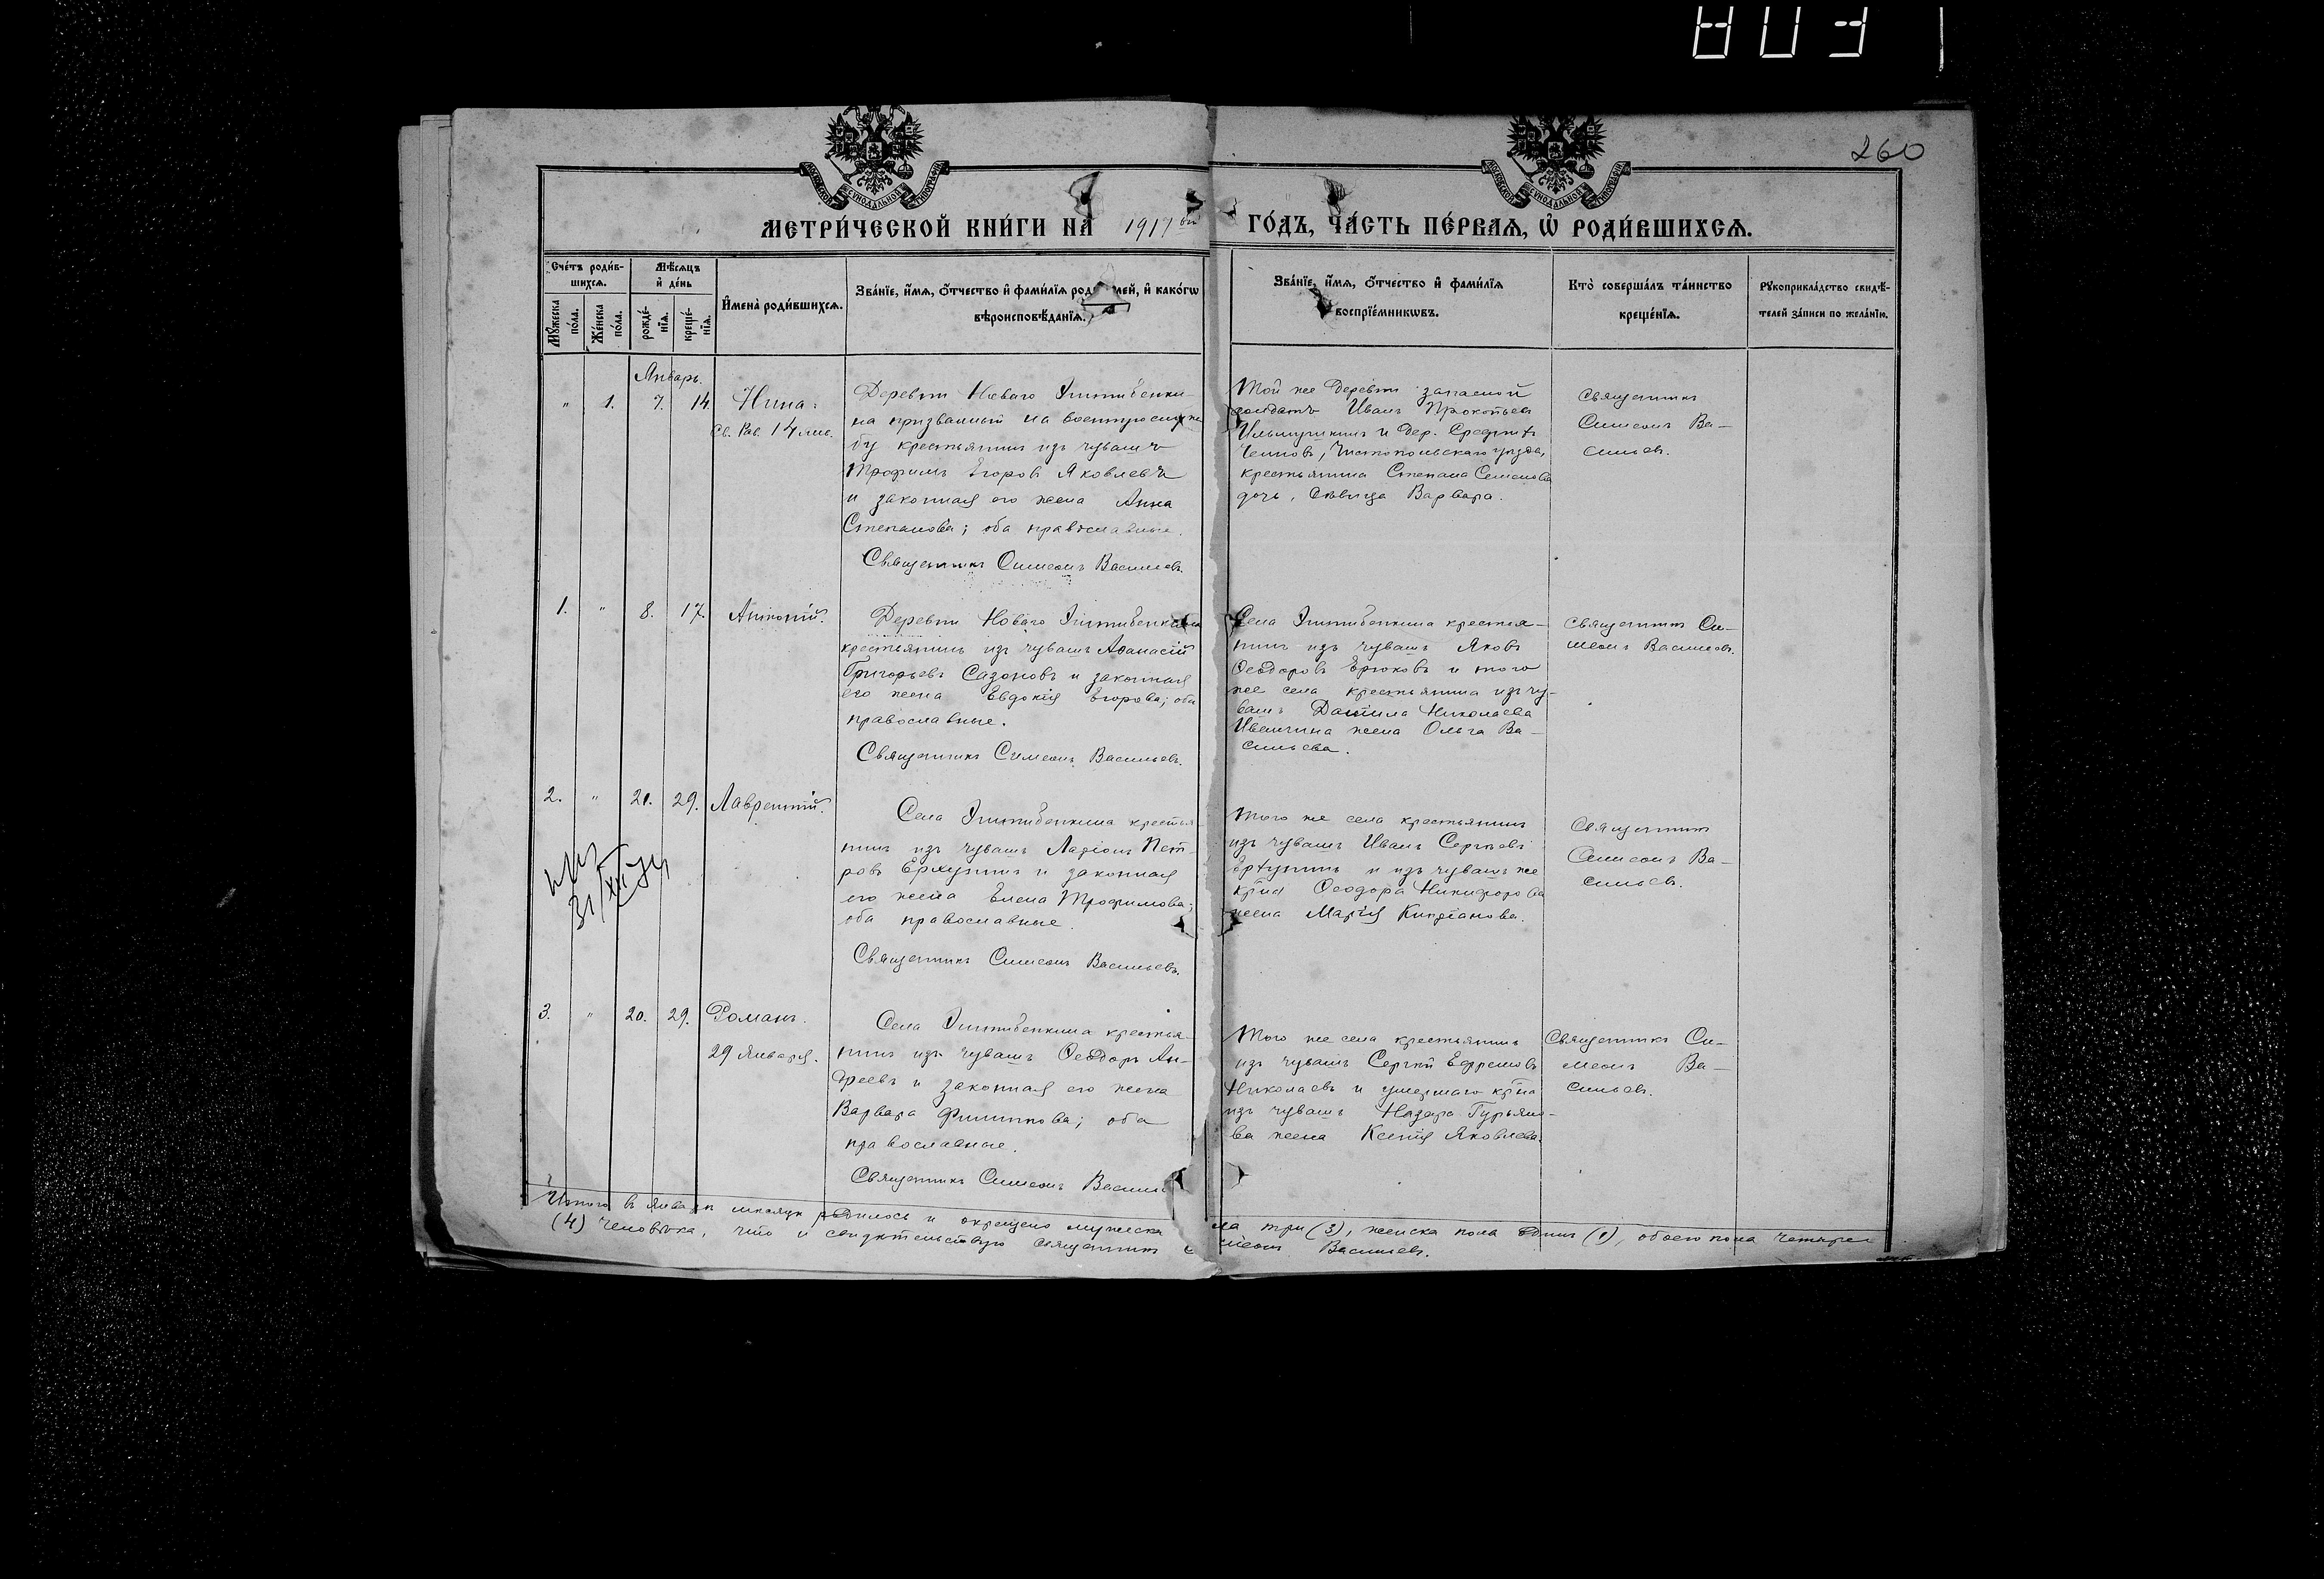 260
МОСКОВСКОЙ СУНОДАЛЬНОЙ ТИПОГРАФІИ
МОСКОВСКОЙ СУНОДАЛЬНОЙ ТИПОГРАФІИ
МЕТРИ́ЧЕСКОЙ КНИ́ГИ НА 1917 ый ГО́ДЪ, ЧА́СТЬ ПЕ́РВАѦ, Ѡ҆ РОДИ́ВШИХСѦ.
Сче́тъ роди́в-
шихсѧ.
Мꙋ́жеска по́ла.
Же́нска по́ла.
Мѣ́сѧцъ
и҆ де́нь
рожде́-
нїѧ.
креще́-
нїѧ.
И҆мена̀ роди́вшихсѧ.
Зва́нїе, и҆́мѧ, ѻ҆́тчество и҆ фами́лїѧ лей, и҆ како́гѡ
вѣроисповѣ́данїѧ.
Зва́нїе, и҆́мѧ, ѻ҆́тчество и҆ фами́лїѧ
воспрїе́мникѡвъ.
Кто̀ соверша́лъ та́инство
креще́нїѧ.
Рꙋкоприкла́дство свидѣ́-
телей за́писи по жела́нїю.
Январь.
" 1. 7. 14. Нина.
Св. Рав. 14 янв.
Деревни Новаго
на призванный на военную служ
бу крестьянинъ изъ чувашъ
Трофимъ Егоровъ Яковлевъ
и законная его жена Анна
Степанова; оба православные.
Священникъ Симеонъ Васильевъ.
Той же деревни запасной
солдатъ Иванъ Прокопьевъ
и дер. Средних
Чистопольскаго уѣзда,
крестьянина Степана Семенова
дочь, дѣвица Варвара.
Священникъ
Симеонъ Ва-
сильевъ.
1. " 8. 17. Антоній.
Деревни Новаго
крестьянинъ изъ чувашъ Аѳанасій
Григорьевъ Сазоновъ и законная
его жена Евдокія Егорова; оба
православные.
Священникъ Симеонъ Васильевъ.
Села крестья-
нинъ изъ чувашъ Яковъ
Ѳеодоровъ Ерюковъ и того
же села крестьянина изъ чу-
вашъ Даніила Николаева
жена Ольга Ва-
сильева.
Священникъ Си-
меонъ Васильевъ.
2. " 21. 29. Лаврентій.
Села крестья-
нинъ изъ чувашъ Ларіонъ Пет-
ровъ и законная
его жена Елена Трофимова;
оба православные.
Священникъ Симеонъ Васильевъ.
Того же села крестьянинъ
изъ чувашъ Иванъ Сергѣевъ
и изъ чувашъ же
Ѳеодора Никифорова
жена Марія Кипріанова.
Священникъ
Симеонъ Ва-
сильевъ.
3. " 20. 29. Романъ.
29 января.
Села крестья-
нинъ изъ чувашъ Ѳеодоръ Ан-
дреевъ и законная его жена
Варвара Филиппова; оба
православные.
Священникъ Симеонъ
Того же села крестьянинъ
изъ чувашъ Сергѣй Ефремовъ
Николаевъ и умершаго
изъ чувашъ Назара Гурьяно-
ва жена Ксенія Яковлева.
Священникъ Си-
меонъ Ва-
сильевъ.
Итого въ январѣ мѣсяцѣ родилось и окрещено мужеска ла три (3), женска пола одинъ (1), обоего пола четыре
(4) человѣка, что и свидѣтельствую Священникъ Васильевъ.